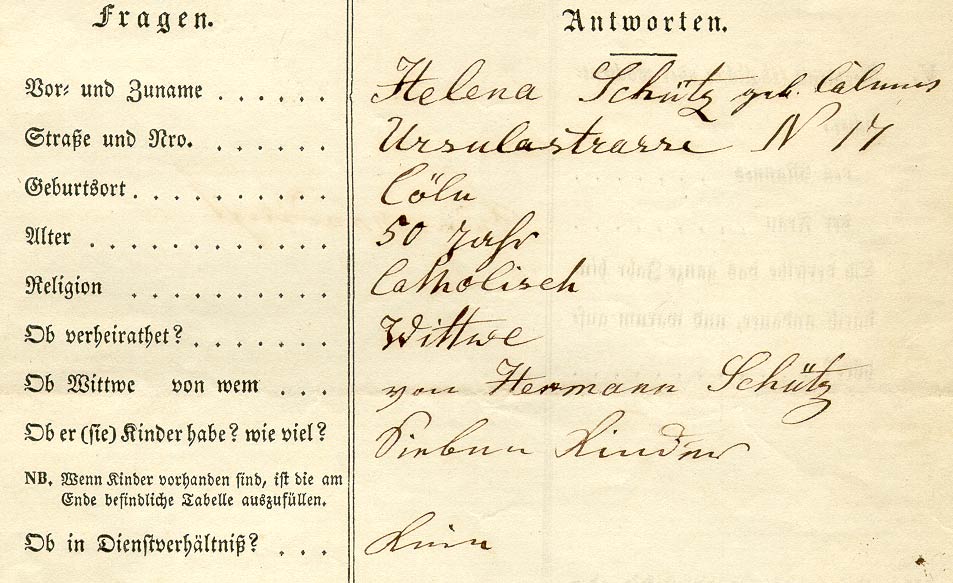 Fragen.
Antworten.
Vor- und Zuname . . . . . . Helena Schütz geb.
Straße und Nro. . . . . . . Ursulastrasse N 17
Geburtsort . . . . . . . . . . Cöln
Alter . . . . . . . . . . . . 50 Jahr
Religion . . . . . . . . . . Catholisch
Ob verheirathet? . . . . . . . Wittwe
Ob Wittwe von wem . . . von Hermann Schütz
Ob er (sie) Kinder habe? wie viel? Sieben Kinder
NB. Wenn Kinder vorhanden sind, ist die am
Ende befindliche Tabelle auszufüllen.
Ob in Dienstverhältniß? . . .